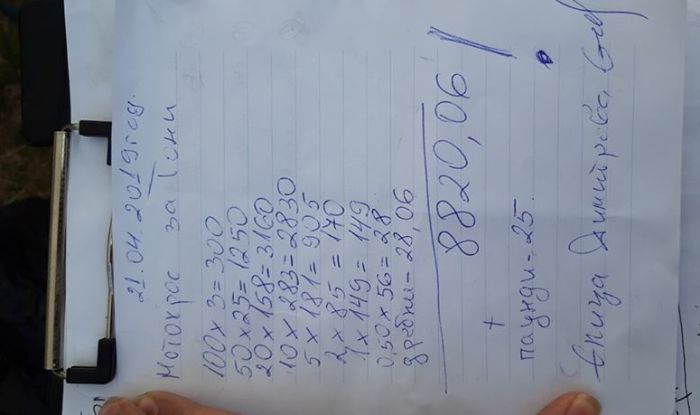 21.04.2019год.
Мотокрос за Тони
100 x 3 = 300
50 x 25 = 1250
20 x 158 = 3160
10 x 283 = 2830
5 x 181 = 905
2 x 85 = 170
1 x 149 = 149
0,50 x 56 = 28
дребни - 28,06
8820,06
+
паунди - 25.
Димитрова